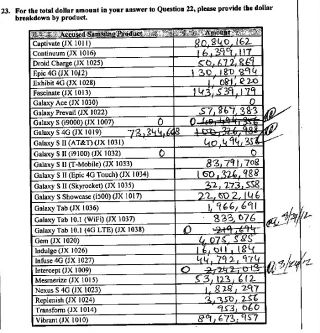 23. For the total dollar amount in your answer to Question 22, please provide the dollar
breakdown by product.
Accused Samsung Product Amount
Captivate (JX 1011) 80,840,162
Continuum (JX 1016) 16,399,117
Droid Charge (JX 1025) 50,672,869
Epic 4G (JX 1012) 130,180,894
Exhibit 4G (JX 1028) 1,081,820
Fascinate (JX 1013) 143,539,179
Galaxy Ace (JX 1030) 0
Galaxy Prevail (JX 1022) 57,867,383
Galaxy S (i9000) (JX 1007) 0 0 40,494,356
Galaxy S 4G (JX 1019) 73,344,668 100,326,988
Galaxy S II (AT&T) (JX 1031) 40,494,356
Galaxy S II (i9100) (JX 1032) 0 0
Galaxy S II (T-Mobile) (JX 1033) 83,791,708
Galaxy S II (Epic 4G Touch) (JX 1034) 100,326,988
Galaxy S II (Skyrocket) (JX 1035) 32,273,558
Galaxy S Showcase (i500) (JX 1017) 22,002,146
Galaxy Tab (JX 1036) 1,966,691
Galaxy Tab 10.1 (WiFi) (JX 1037) 833,076
Galaxy Tab 10.1 (4G LTE) (JX 1038) 0 219,694
Gem (JX 1020) 4,075,585
Indulge (JX 1026) 16,011,184
Infuse 4G (JX 1027) 44,792,974
Intercept (JX 1009) 0 2,242,013
Mesmerize (JX 1015) 53,123,612
Nexus S 4G (JX 1023) 1,828,297
Replenish (JX 1024) 3,350,256
Transform (JX 1014) 953,060
Vibrant (JX 1010) 89,673,957